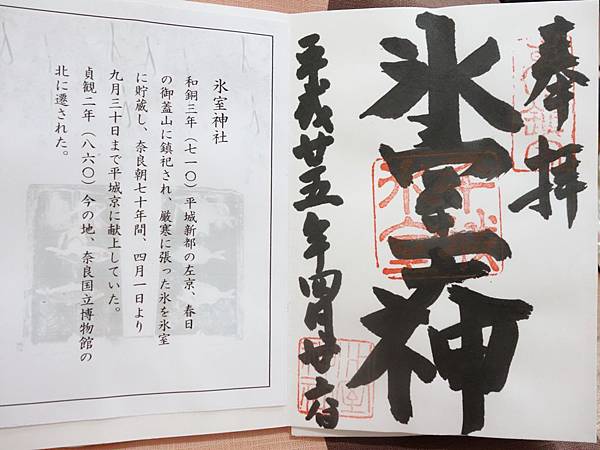 奉拝
氷室天神
平成廿五年四月廿六日
氷室神社
和銅三年（七一〇）平城新都の左京、春日
の御蓋山に鎮祀され、厳寒に張った氷を氷室
に貯蔵し、奈良朝七十年間、四月一日より
九月三十日まで平城京に献上していた。
貞観二年（八六〇）今の地、奈良国立博物館の
北に遷された。